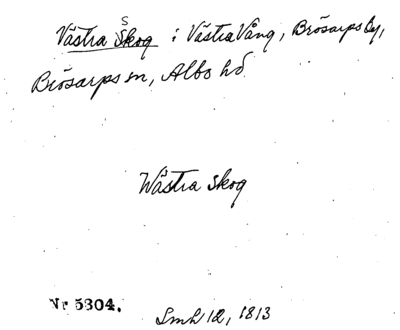 Västra Skog i Västra Vång, Brösarps by,
Brösarps sn, Albo hd
Wästra skog
Nr 5304. Lmh 12, 1813